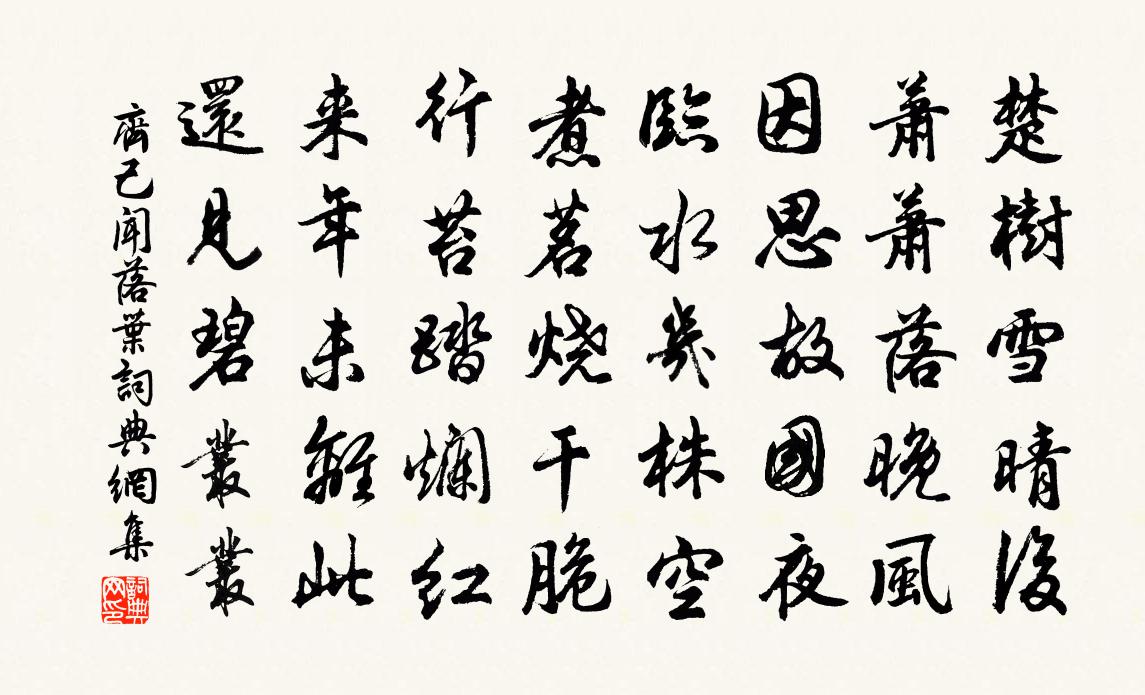 楚樹雪晴後
蕭蕭落晚風
因思故國夜
臨水幾株空
煮茗燒干脆
行苔踏爛紅
来年未離此
還見碧叢叢
齊己聞落葉詞典網集
詞典網印